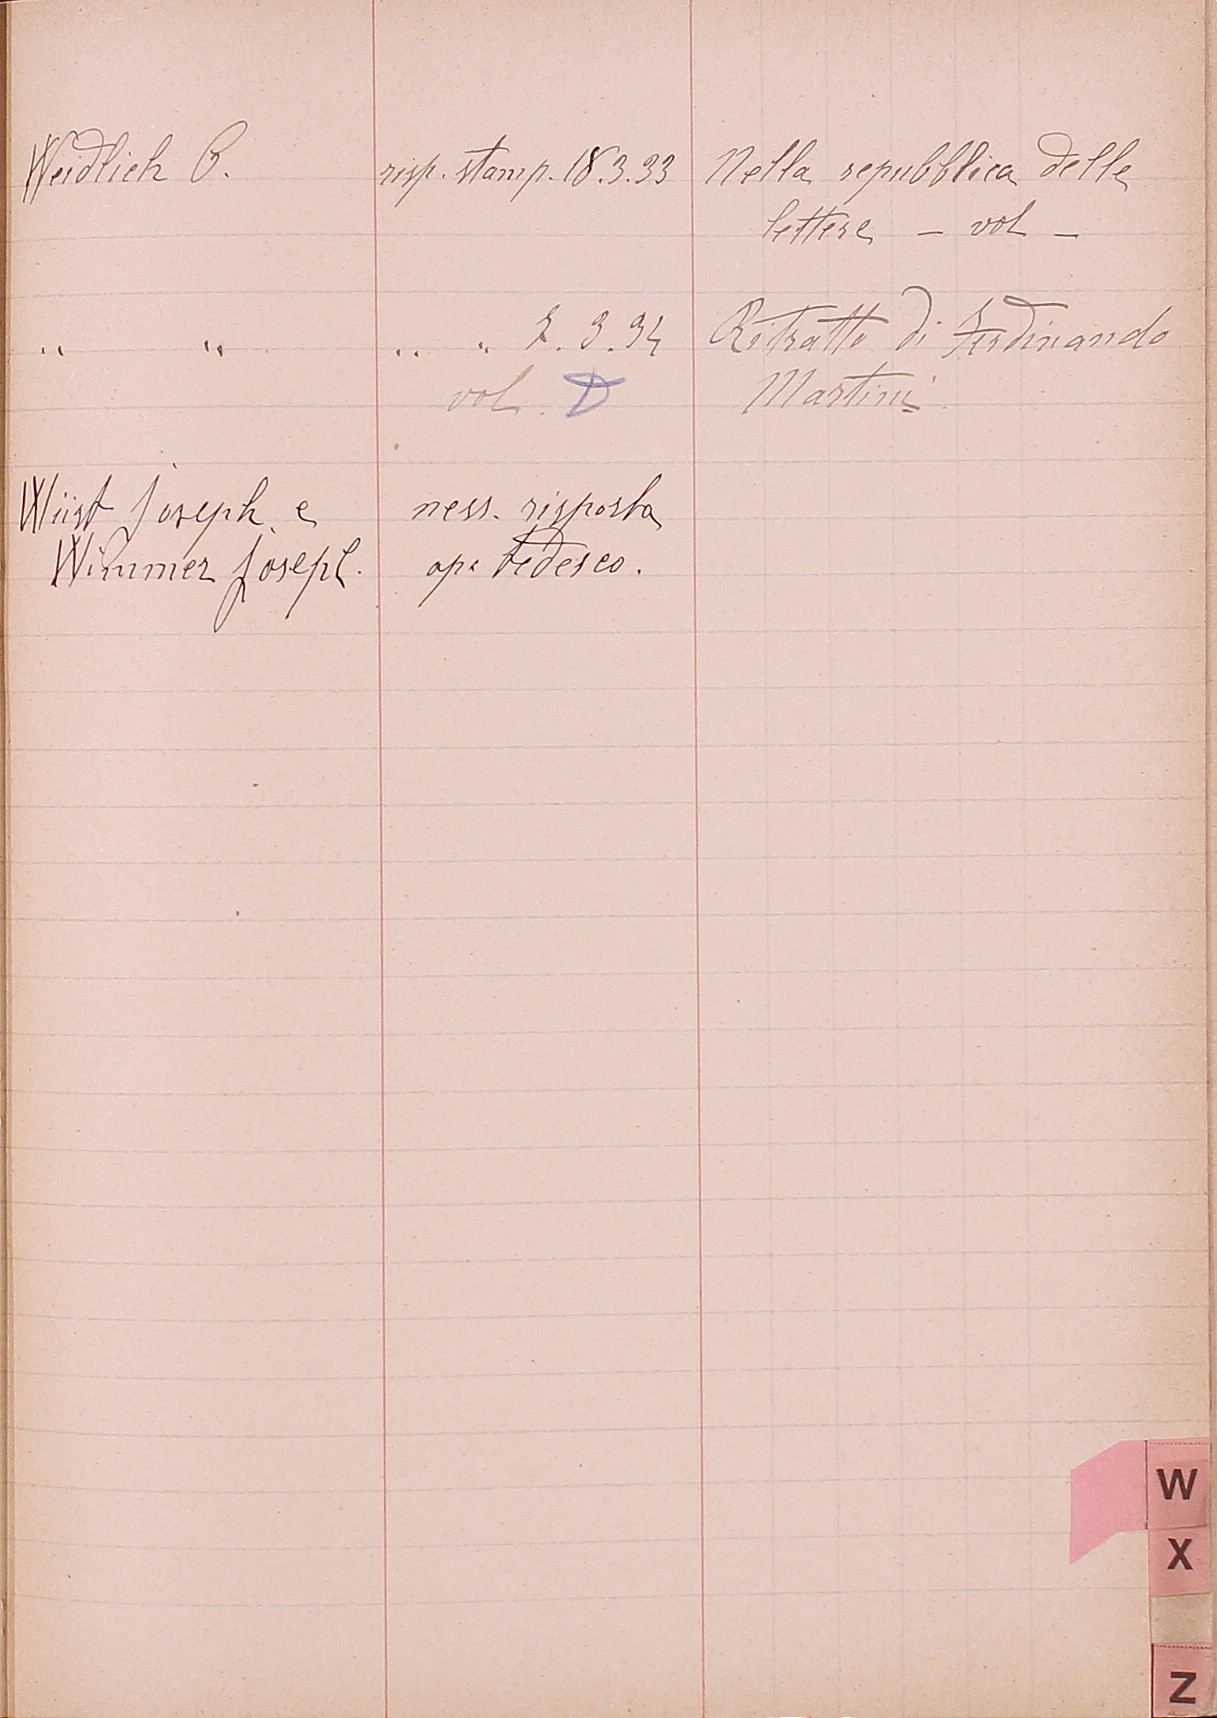 Weidlich C. risp. stamp. 18.3.33 Nella repubblica delle
lettere – vol –
" " " " 2.3.34 Ritratto di Ferdinando
vol. D Martini
Wüst Joseph e ness. risposta
Wimmer Joseph. op. tedesco.
W
X
Z